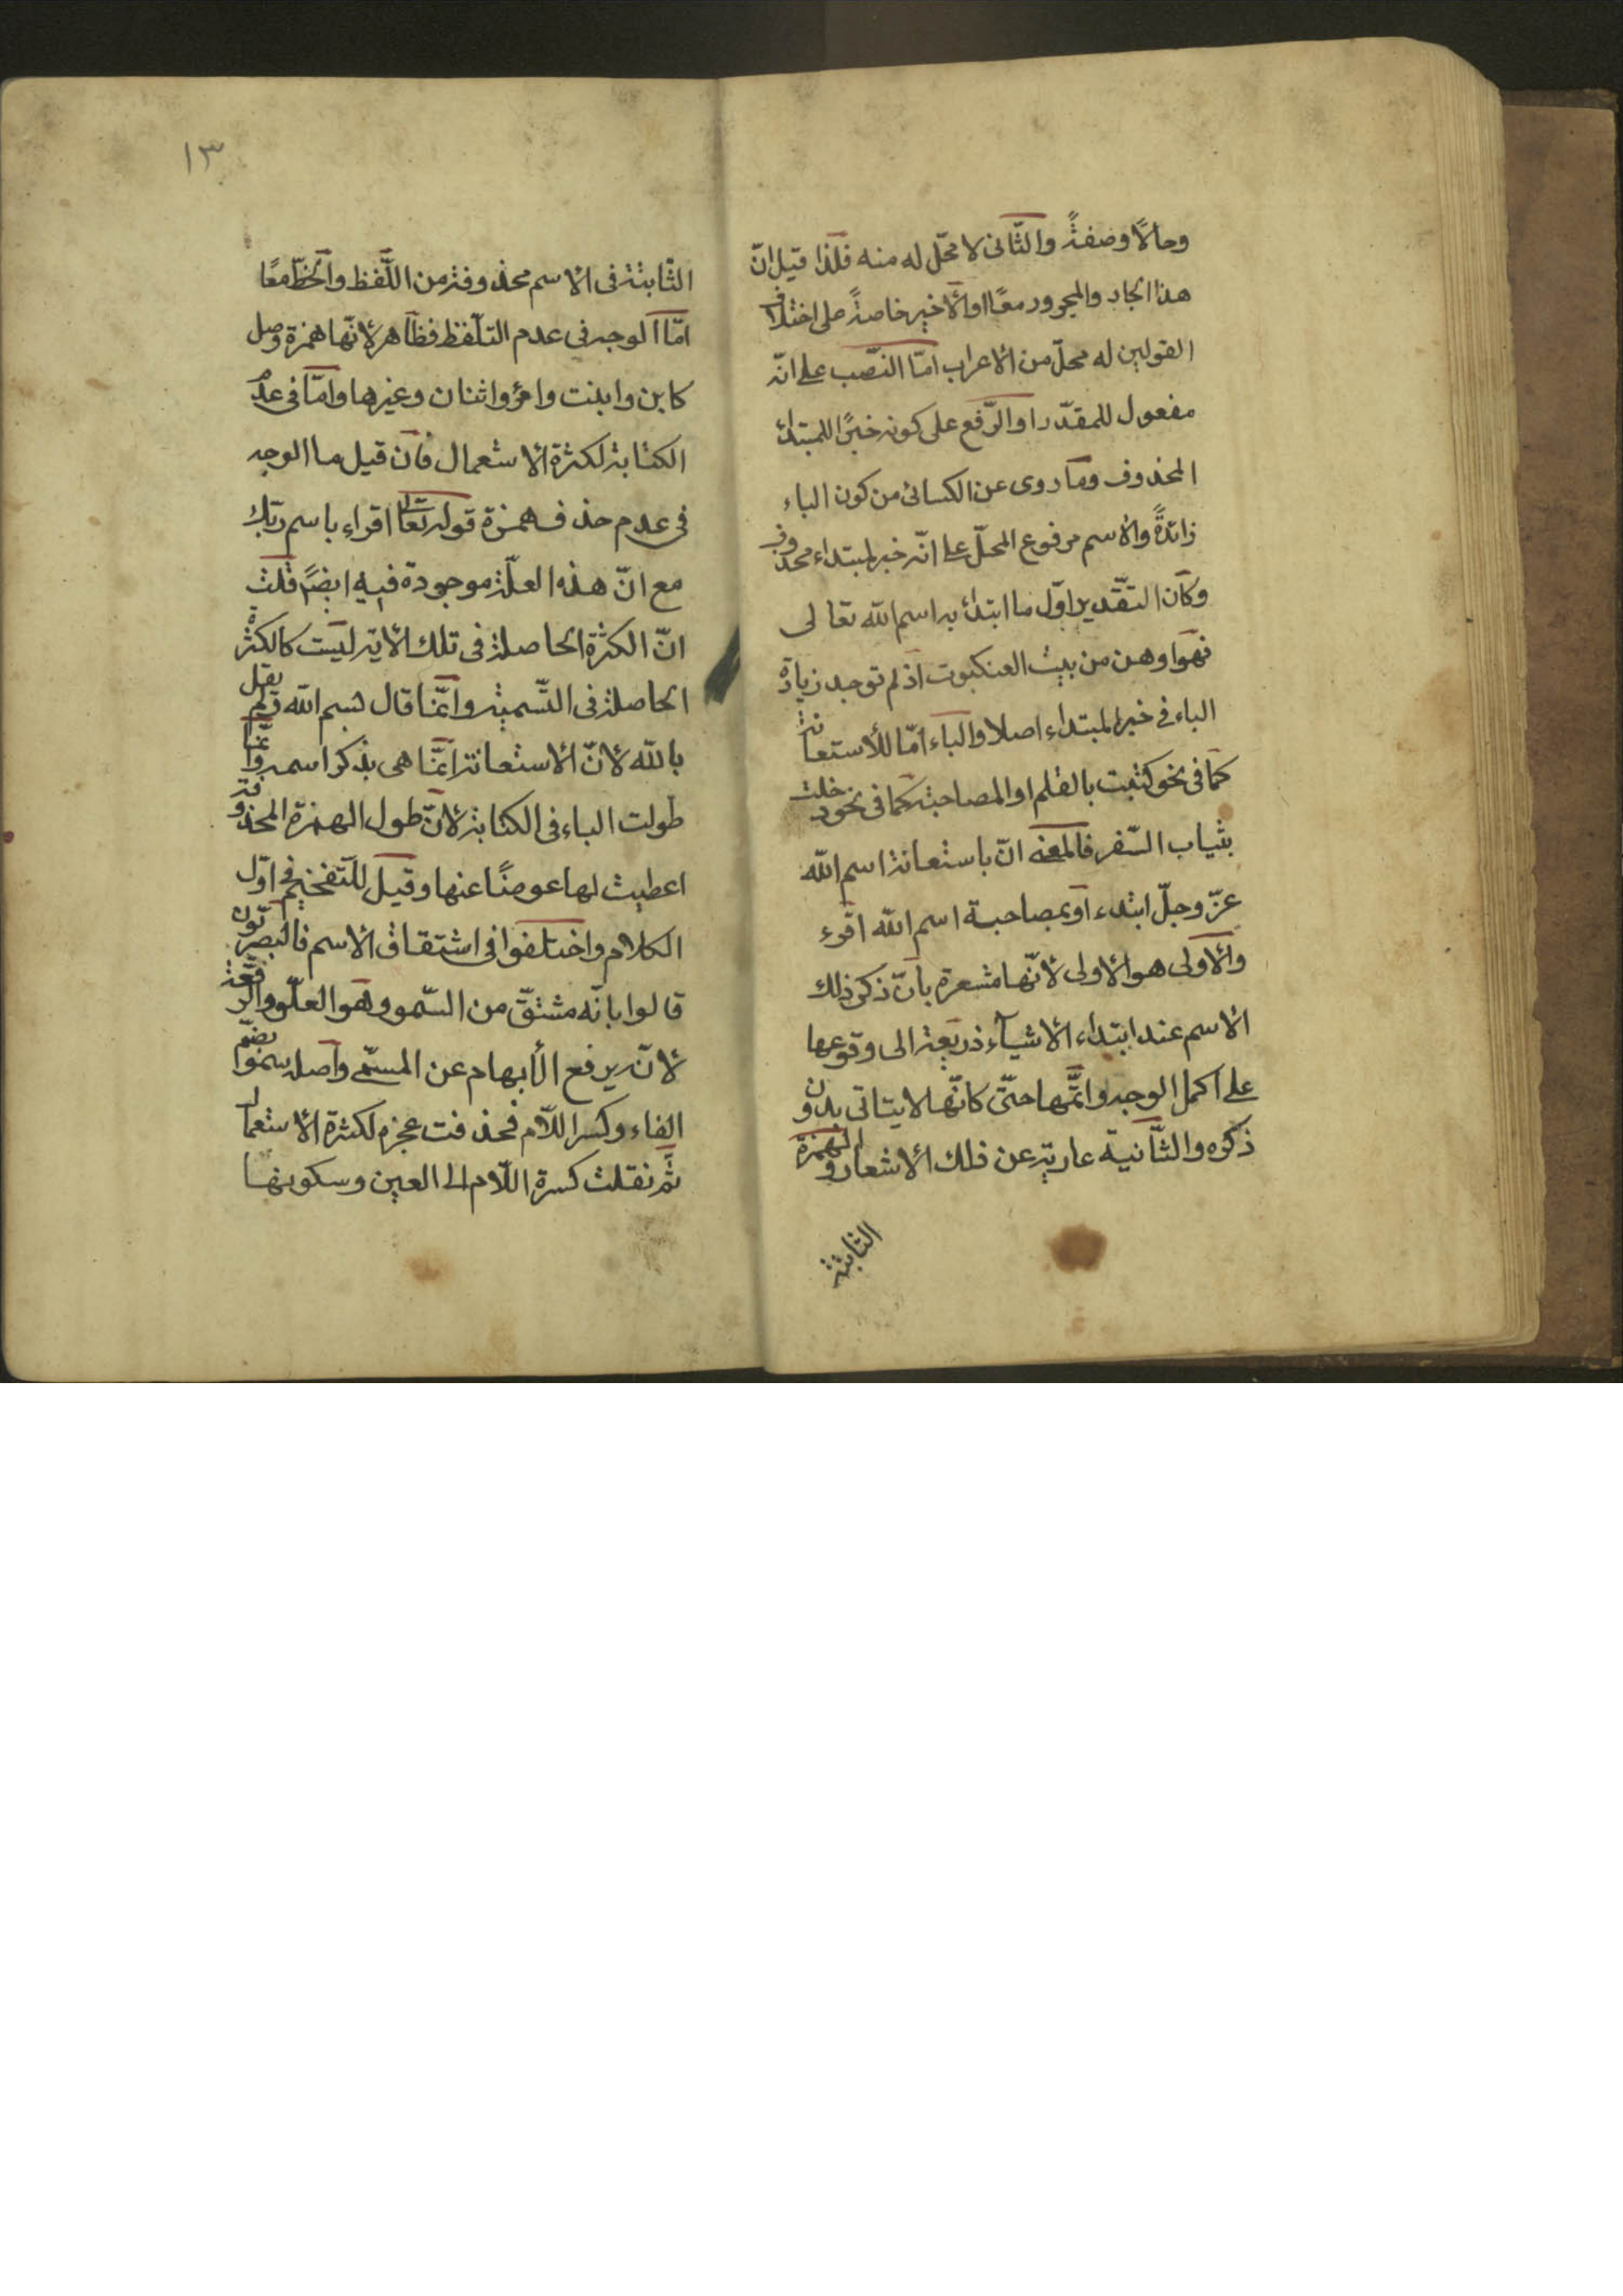 وحالاً وصفةً والثّانى لا محلّ له منه فلذا قيل انّ
هذا الجار والمجرور معًا او الأخير خاصةً على اختلاف
القولين له محلّ من الاعراب امّا النّصب على انّه
مفعول للمقدّر او الرّفع على كونه خبرًا للمبتدأ
المحذوف وما روى عن الكسائى من كون الباء
زائدةً والاسم مرفوع المحلّ على انّه خبر لمبتداء محذوف
وكان التقدير اوّل ما ابتدأ به اسم الله تعالى
فهو اوهن من بيت العنكبوت اذ لم توجد زيادة
الباء فى خبر المبتداء اصلا والباء امّا للأستعانة
كما فى نحو كتبت بالقلم او المصاحبة كما فى نحو دخلت
بثياب السّفر فالمعنى انّ باستعانة اسم الله
عزّ وجلّ ابتدء او بمصاحبة اسم الله اقرء
والأولى هو الاولى لانّها مشعرة بانّ ذكر ذلك
الاسم عند ابتداء الاشيآء ذريعة الى وقوعها
على اكمل الوجه واتمّها حتّى كانّها لا يتاتى بدون
ذكره والثّانية عارية عن ذلك الاشعار والهمزة
الثابتة
١٣
الثّابتة فى الاسم محذوفة من اللّفظ والخطّ معًا
امّا الوجه فى عدم التلّفظ فظاهر لأنّها همزة وصل
كابن وابنت وامرؤ واثنان وغيرها وامّا فى عدم
الكتابة لكثرة الاستعمال فان قيل ما الوجه
فى عدم حذف همزة قوله تعالى اقراء باسم ربّك
مع انّ هذه العلّة موجودة فيه ايضًا قلت
انّ الكثرة الحاصلة فى تلك الأية ليست كالكثرة
الحاصلة فى التّسمية وانّما قال بسم الله ولم يقل
بالله لانّ الأستعانة انّما هى بذكر اسمه وانّما
طولت الباء فى الكتابة لانّ طول الهمزة المحذوفة
اعطيت لها عوضًا عنها وقيل للتّفخيم فى اوّل
الكلام واختلفوا فى اشتقاق الاسم فالبصريّون
قالوا بانّه مشتقّ من السّمو وهو العلّو والرّفعة
لانّه يرفع الأبهام عن المسمّى واصله سموا بضمّ
الفاء وكسر اللاّم فحذفت عجزه لكثرة الاستعمال
ثمّ نقلت كسرة اللاّم الى العين وسكونها